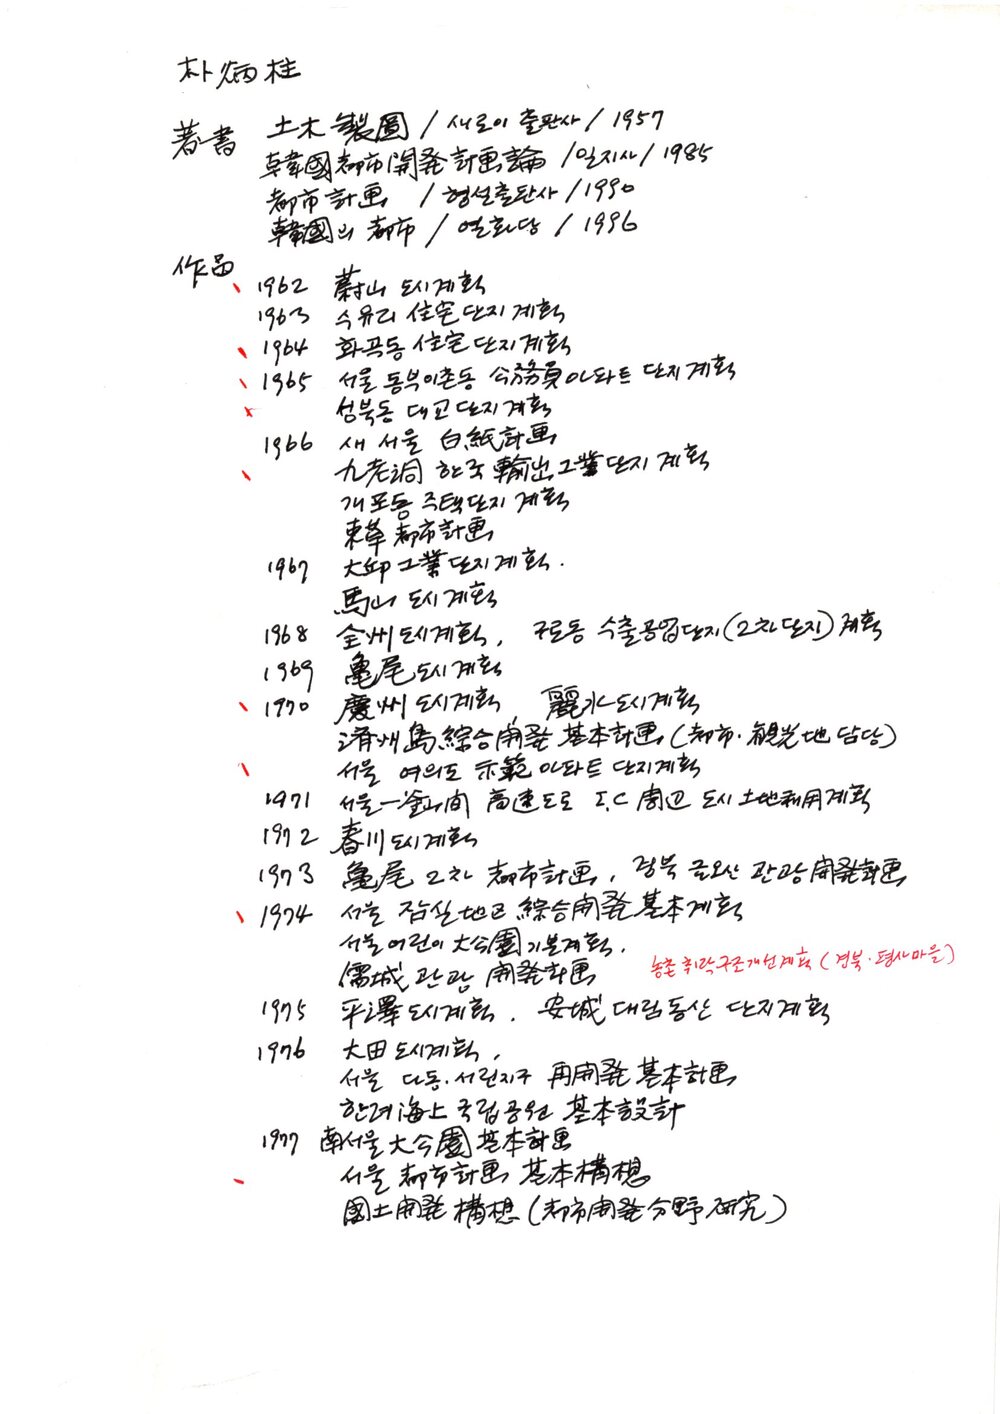 朴炳柱
著書 土木製圖 / 새로이 출판사 / 1957
韓國都市開発計画論 / 일지사 / 1985
都市計画 / 형설출판사 / 1990
韓國의 都市 / 열화당 / 1996
作品
1962 蔚山 도시계획
1963 수유리 住宅단지계획
1964 화곡동 住宅단지계획
1965 서울 동부이촌동 公務員아파트 단지계획
성북동 대교단지계획
1966 새 서울 白紙計画
九老洞 한국 輸出工業단지계획
개포동 주택단지 계획
東草 都市計画
1967 大邱工業단지계획.
馬山 도시계획
1968 全州도시계획, 구로동 수출공업단지(2차단지) 계획
1969 亀尾도시계획
1970 慶州도시계획, 麗水도시계획
済州島綜合開発基本計画(都市·観光地담당)
서울 여의도 示範아파트 단지계획
1971 서울-釜山間 高速도로 I.C 周辺 도시土地利用계획
1972 春川도시계획
1973 亀尾 2차 都市計画, 경북 금오산 관광開発計画
1974 서울 잠실地구 綜合開発基本계획
서울어린이大公園기본계획,
儒城관광 開発計画 농촌취락구조개선계획(경북·평사마을)
1975 平澤도시계획, 安城대림동산 단지계획
1976 大田도시계획,
서울 다동·서린지구 再開発基本計画
한려海上국립공원 基本設計
1977 南서울大公園基本計画
서울都市計画 基本構想
國土開発構想(都市開発分野研究)